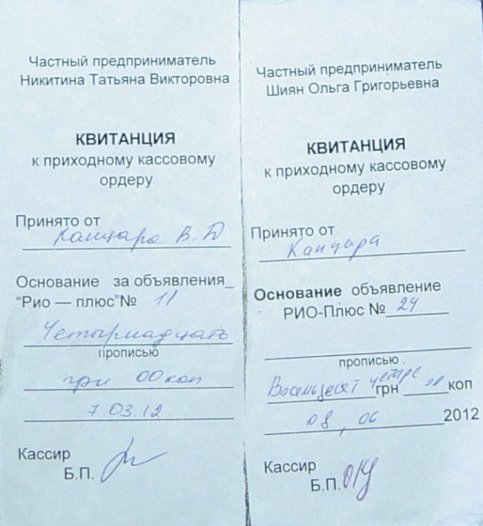 Частный предприниматель
Никитина Татьяна Викторовна
КВИТАНЦИЯ
к приходному кассовому
ордеру
Принято от
Канцара В. Д
Основание за объявления_
“Рио — плюс”№ 11
Четырнадцать
прописью
грн 00 коп
7 03.12
Кассир
Б.П.
Частный предприниматель
Шиян Ольга Григорьевна
КВИТАНЦИЯ
к приходному кассовому
ордеру
Принято от
Канцара
Основание объявление
РИО-Плюс № 24
прописью
Восемьдесят четыре грн 00 коп
08, 06 2012
Кассир
Б.П.